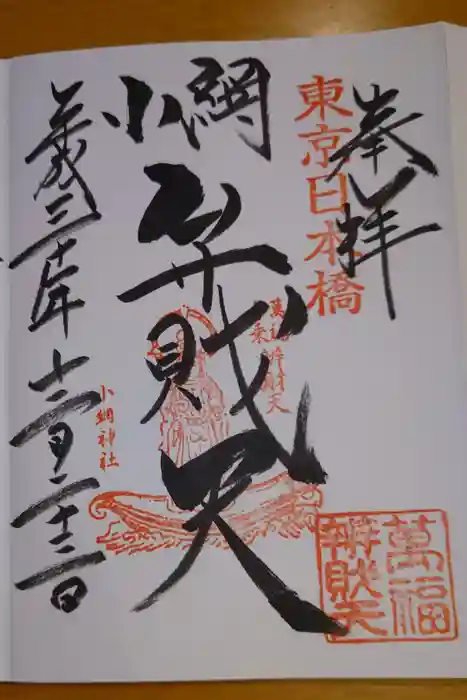 奉拝
東京日本橋
小網
弁財天
萬福弁財天
乗
萬福
辨財天
小網神社
平成三十年
十二月二十二日